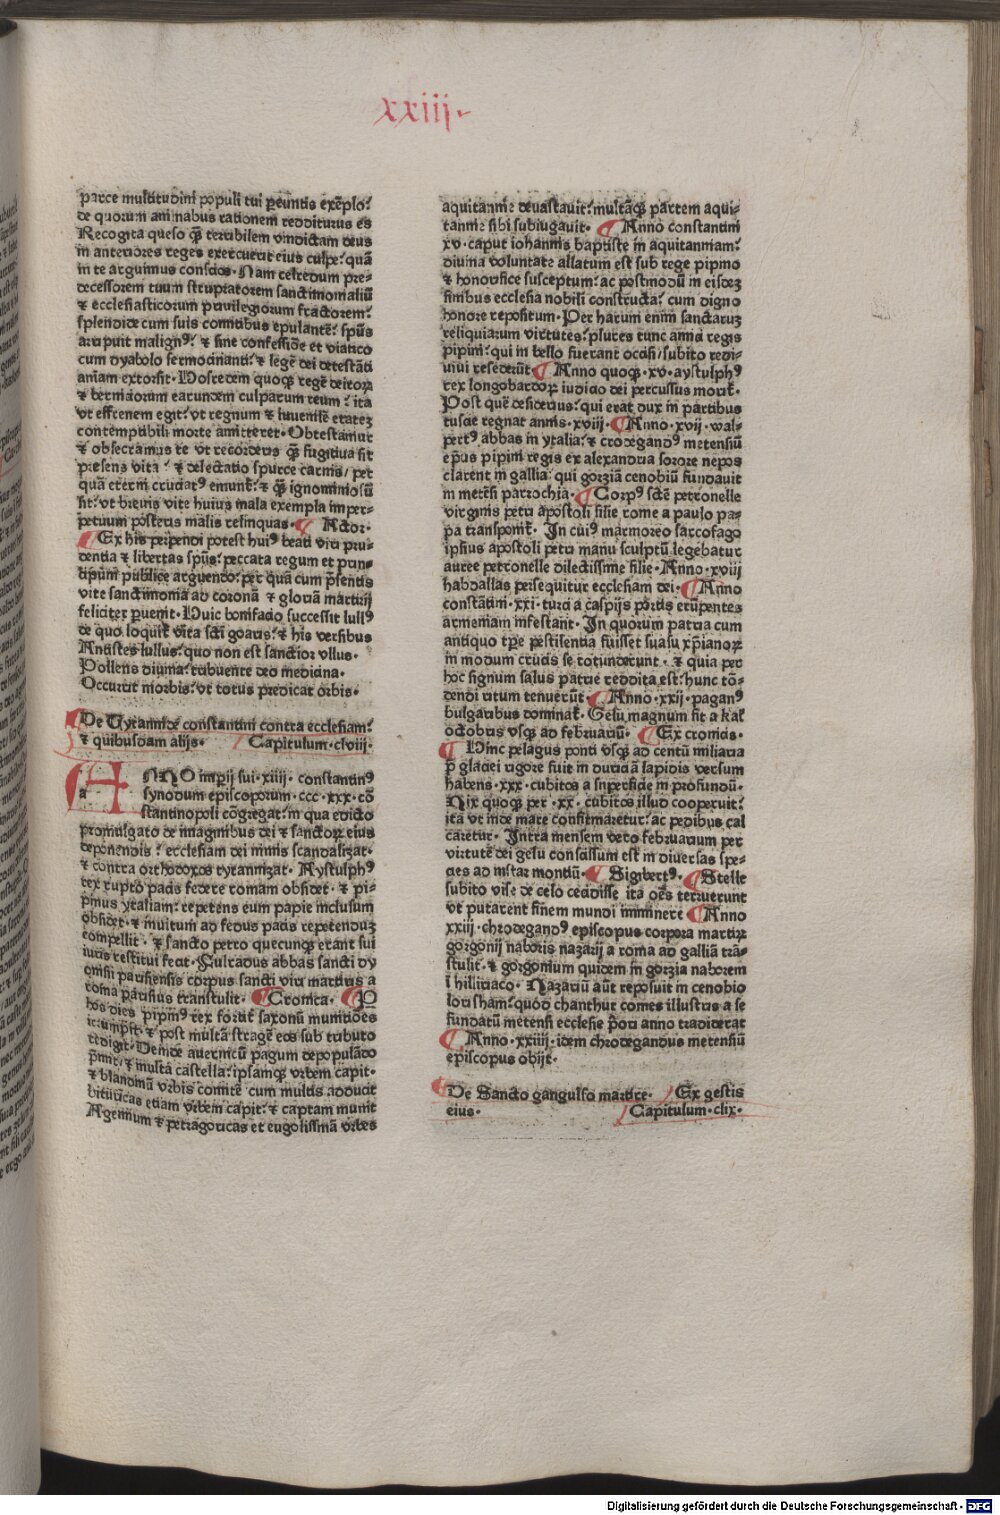 xxiij.
parce multitudini populi tui pereuntis exēplo:
de quorum animabus rationem redditurus es
Recogita queso qȝ terribilem vindictam deus
in anteriores reges exercuerit eius culpe: quā
in te arguimus conscios. Nam celredum pre-
decessorem tuum stupratorem sanctimonialiū
⁊ ecclesiasticorum priuilegiorum fractorem:
splendide cum suis comitibus epulantē: spūs
arripuit malignꝰ: ⁊ sine confessiōe et viatico
cum dyabolo sermocinanti: ⁊ legē dei detestāti
aniam extorsit. Hosredem quoqȝ regē deiroꝝ
⁊ berniciorum earundem culparum reum: ita
vt effrenem egit: vt regnum ⁊ iuuenilē etatez
contemptibili morte amitteret. Obtestamur
⁊ obsecramus te vt recorderis qȝ fugitiua sit
presens vita: ⁊ delectatio spurce carnis, per
quā eterni cruciatꝰ emunt: ⁊ qȝ ignominiosū
sit: vt breuis vite huius mala exempla imper-
petuum posteris malis relinquas. Actor.
Ex his perpendi potest huiꝰ beati viri pru-
dentia ⁊ libertas spūs: peccata regum et prin-
cipum publice arguendo: per quā cum p̄sentis
vite sanctimonia ad coronā ⁊ gloriā martirij
feliciter puenit. Huic bonifacio successit lullꝰ
de quo loquit̉ vita scti goaris: ⁊ his versibus
Antistes lullus: quo non est sanctior vllus.
Pollens diuina: tribuente deo medicina.
Occurrit morbis: vt totus predicat orbis.
De Tyrannide constantini contra ecclesiam:
⁊ quibusdam alijs. Capitulum. clviij.
aNNO imperij sui. xiiij. constantinꝰ
synodum episcoporum. ccc. xxx. cō
stantinopoli cōgregat: in qua edicto
promulgato de imaginibus dei ⁊ sanctoꝝ eius
deponendis: ecclesiam dei nimis scandalizat.
⁊ contra orthodoxos tyrannizat. Aystulphꝰ
rex rupto pacis federe romam obsidet. ⁊ pi-
pinus ytaliam: repetens eum papie inclusum
obsidet. ⁊ inuitum ad fedus pacis repetenduz
compellit. ⁊ sancto petro quecunqȝ erant sui
iuris restitui fecit. Fulradus abbas sancti dy
onisij parisiensis corpus sancti viti martiris a
roma parisius transtulit. Cronica. P
hos dies pipinꝰ rex fortit̉ saxonū munitiōes
irrumpit. ⁊ post multā stragē eos sub tributo
redigit. Deinde auernicū pagum depopulādo
p̄mit, ⁊ multa castella: ipsamqȝ vrbem capit.
⁊ blandinū vrbis comitē cum multis adducit
bituricas etiam vrbem capit: ⁊ captam munit
Agennum ⁊ petragoricas et engolissimā vrbes
aquitannie deuastauit: multāqȝ partem aqui-
tannie sibi subiugauit. Anno constantini
xv. caput iohannis baptiste in aquitanniam:
diuina voluntate allatum est sub rege pipino
⁊ honorifice susceptum: ac postmodū in eisdez
finibus ecclesia nobili constructa: cum digno
honore repositum. Per harum enim sanctaruz
reliquiarum virtutes: plures tunc amici regis
pipini: qui in bello fuerant occisi, subito redi-
uiui resederūt Anno quoqȝ. xv. aystulphꝰ
rex longobardoꝝ iudicio dei percussus morit̉.
Post quē desiderius: qui erat dux in partibus
tuscie regnat annis. xviij. Anno. xvij. wal-
pertꝰ abbas in ytalia: ⁊ crodegandꝰ metensiū
ep̄us pipini regis ex alexandria sorore nepos
clarent in gallia: qui gorziā cenobiū fundauit
in metēsi parrochia. Corpꝰ scte petronelle
virginis petri apostoli filie rome a paulo pa-
pa transponit̉. In cuiꝰ marmoreo sarcofago
ipsius apostoli petri manu sculptū legebatur
auree petronelle dilectissime filie. Anno. xviij
habdallas persequitur ecclesiam dei. Anno
constātini. xxi. turci a caspijs portis erūpentes
armeniam infestant. In quorum patria cum
antiquo tpe pestilentia fuisset suasu xp̄ianoꝝ
in modum crucis se totunderunt. ⁊ quia per
hoc signum salus patrie reddita est: hunc tō-
dendi ritum tenuerūt. Anno. xxij. paganꝰ
bulgaribus dominat̉. Gelu magnum fit a kal̉
octobris vsqȝ ad februariū. Ex cronicis.
Hinc pelagus ponti vsqȝ ad centū miliaria
p̄ glaciei rigore fuit in duriciā lapidis versum
habens. xxx. cubitos a superficie in profundū.
Nix quoqȝ per. xx. cubitos illud cooperuit:
ita vt inde mare confirmaretur: ac pedibus cal
caretur. Intra mensem vero februarium per
virtutē dei gelu conscissum est in diuersas spe-
cies ad instar montiū. Sigibertꝰ. Stelle
subito vise de celo cecidisse ita oēs terruerunt
vt putarent finem mundi imminere Anno
xxiij. chrodegandꝰ episcopus corpora martirꝝ
gorgonij naboris nazarij a roma ad galliā trā-
stulit. ⁊ gorgonium quidem in gorzia naborem
ī hilliriaco. Nazariū aūt reposuit in cenobio
lorisham: quod chanthur comes illustris a se
fundatū metensi ecclesie p̄ori anno tradiderat
Anno. xxiiij. idem chrodegandus metensiū
episcopus obijt.
De Sancto gangulfo martire. Ex gestis
eius. Capitulum. clix.
Digitalisierung gefördert durch die Deutsche Forschungsgemeinschaft - DFG